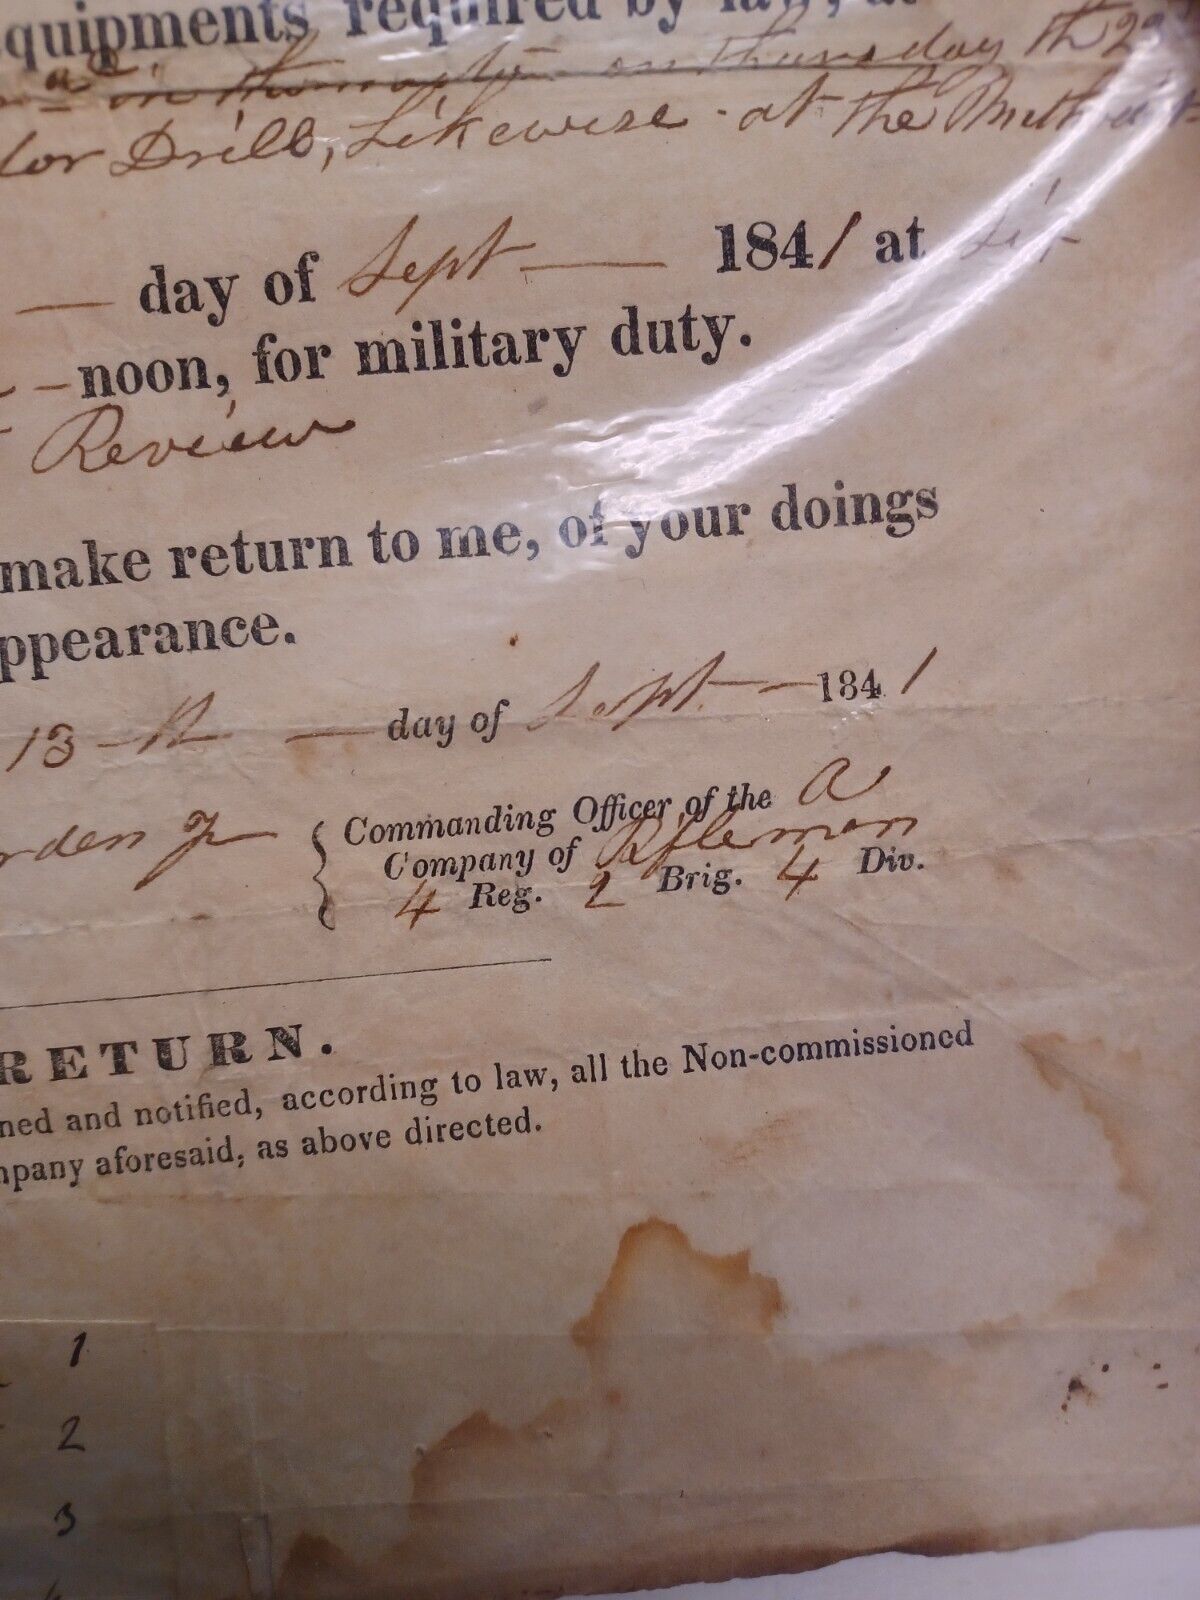 quipments required by law, at
on thursday th 23
for Drill, Likewise - at the
day of Sept 1841 at
- noon, for military duty.
Review
make return to me, of your doings
ppearance.
13 th day of Sept 1841
rden Jr { Commanding Officer of the A
Company of Riflemen
4 Reg. 2 Brig. 4 Div.
RETURN.
ned and notified, according to law, all the Non-commissioned
mpany aforesaid, as above directed.
1
2
3